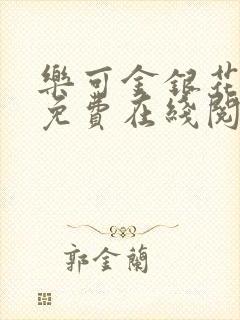 樂可金銀花
免費在綫閱
郭金蘭